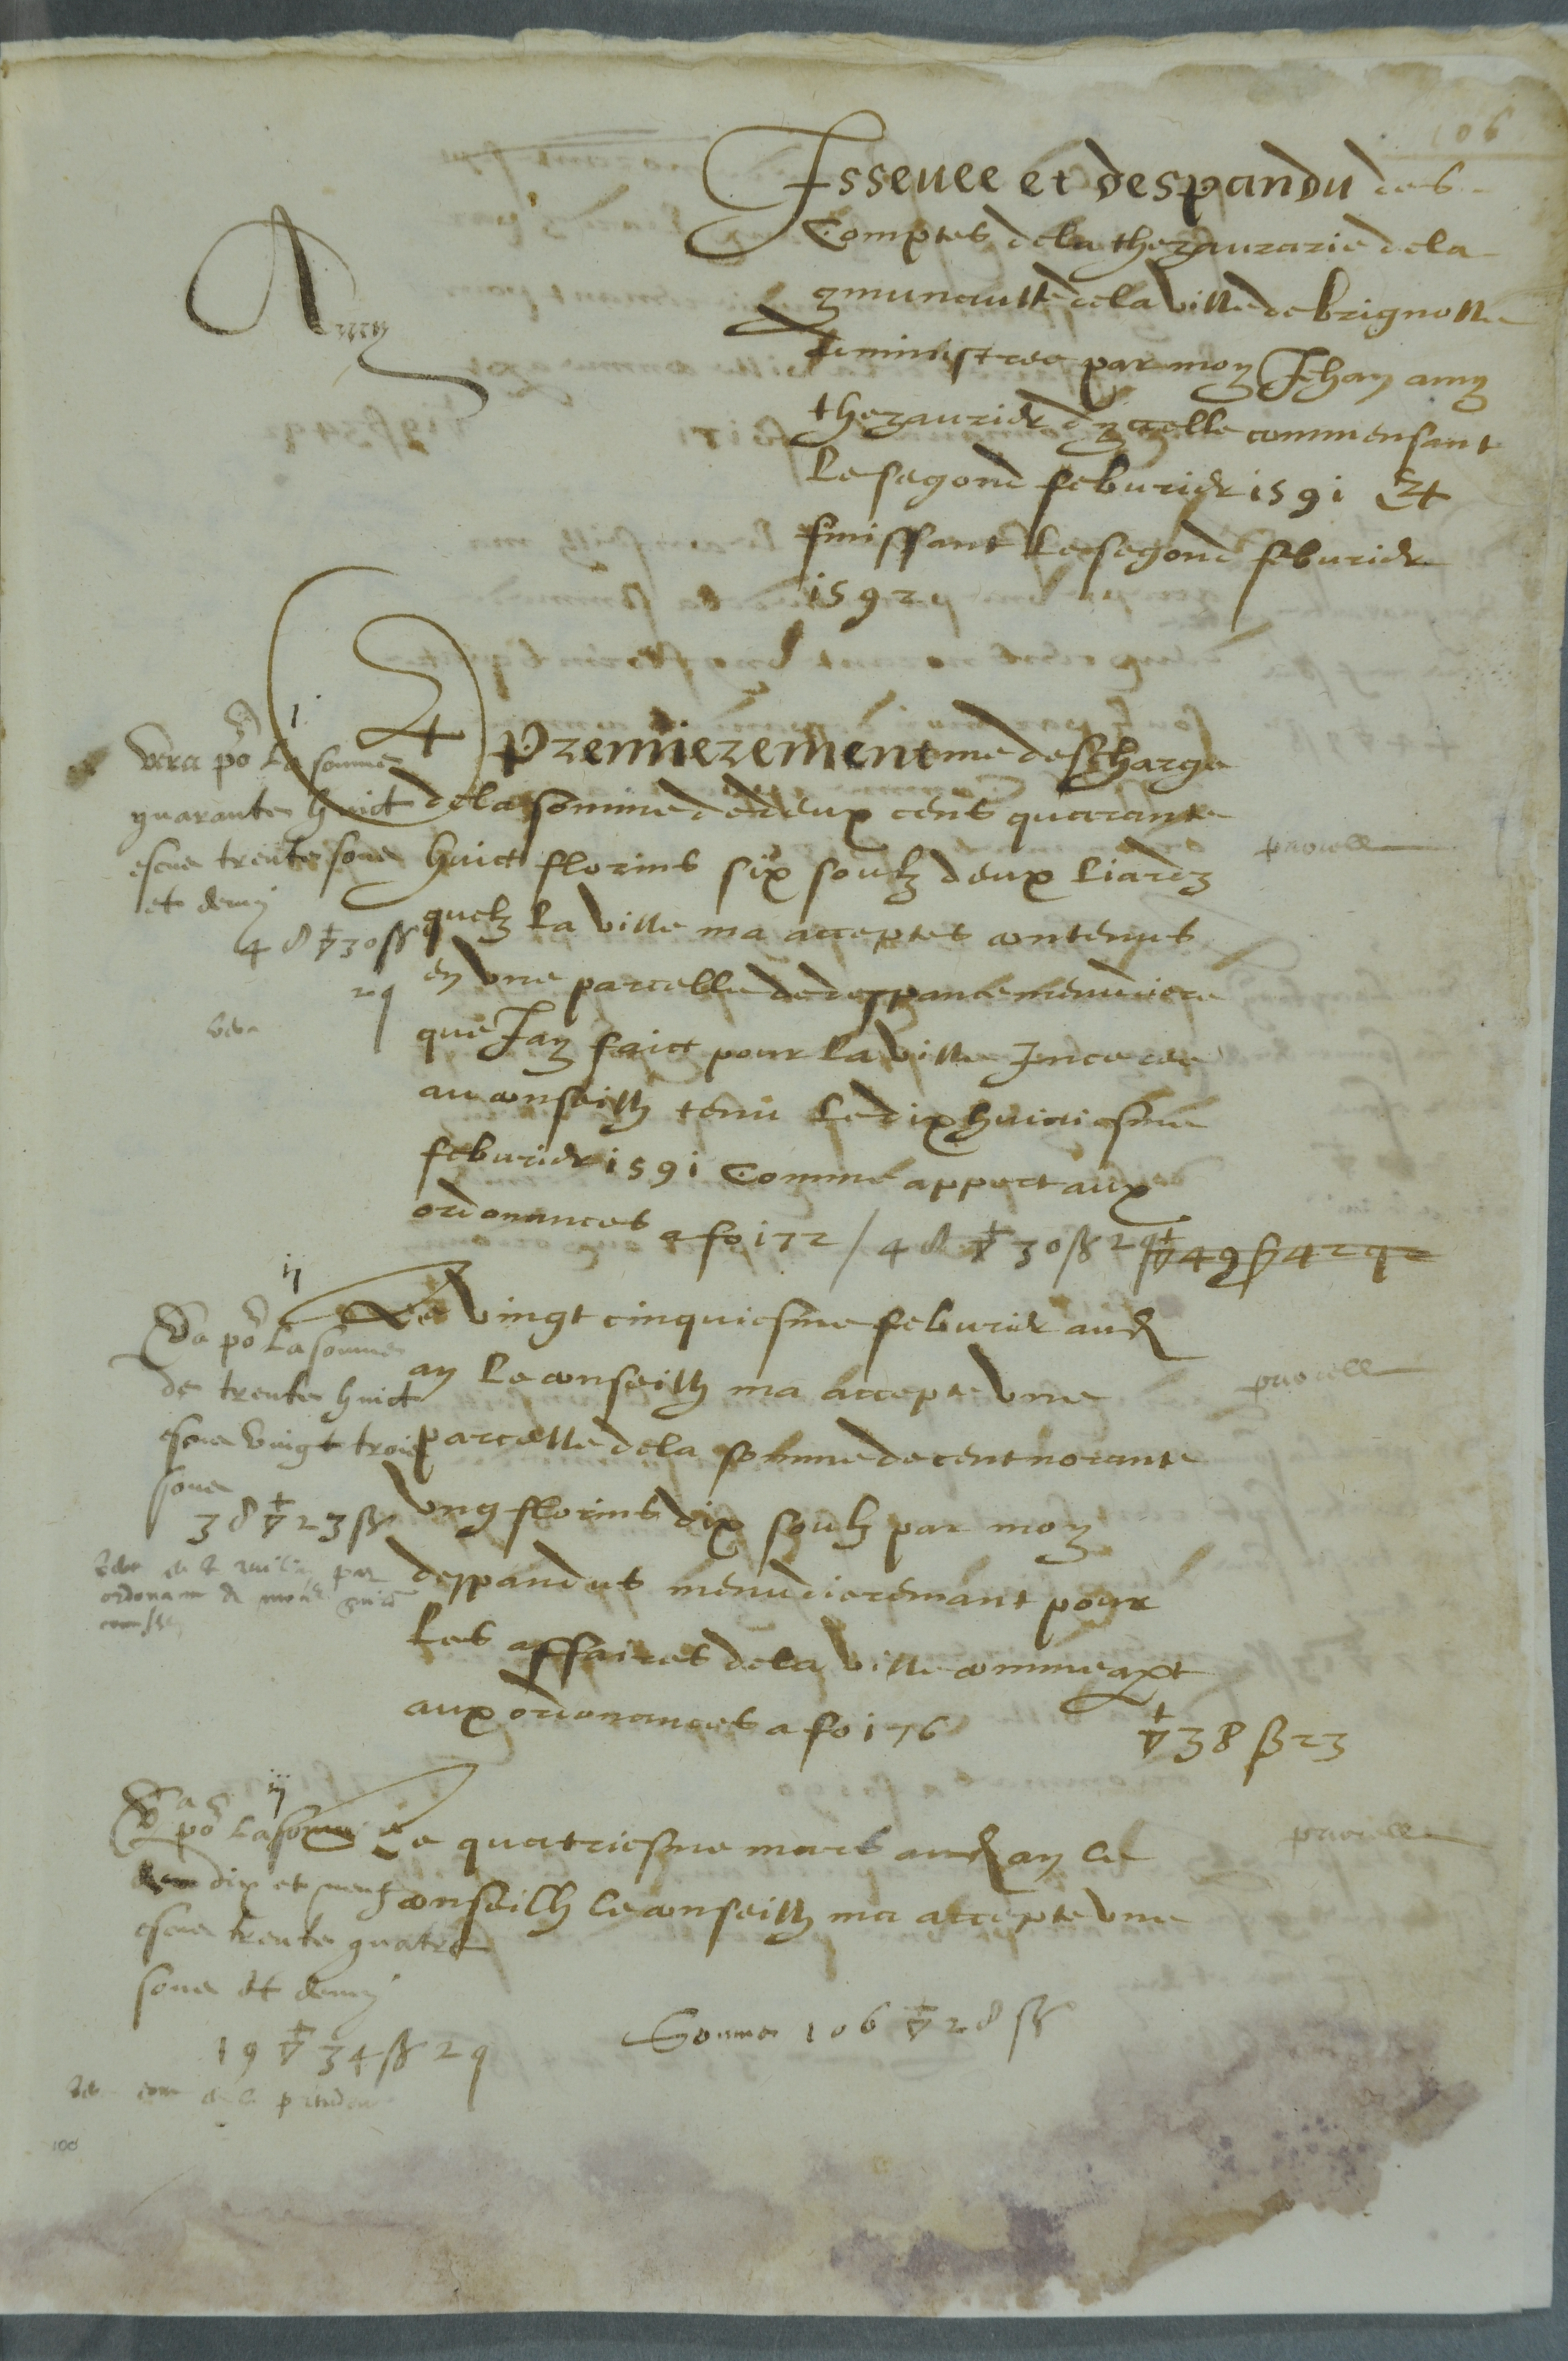 106
Isseuee et despandu des
Comptes de la thezaurarie de la
9munaulte de la ville de brignolle
Amy
administree par moy Jhan amy
thezaurier dycelle commensant
le segond feburier 1591 Et
finissant le segond feburier
1592
i
Et premierement me descharge
de la somme de deux cens quarante
huict florins six soulz deux liardz
quelz la ville ma acceptes contenus
en vne parcelle de despance menudiere
que Jay faict pour la ville
au conseilh tenu le dix huictiesme
feburier 1591 Comme appert aux
ordonances a fo 172 / 48 ∇ 30 ß 2 q ∇ 49 ß 42 q 2
po la somme
quarante huict
escus trente sous
et demy
48 ∇ 30 ß
2 q
parcelle
ij
Le vingt cinquiesme feburier aud
an le conseilh ma accepte vne
parcelle de la somme de cent norante
vng florins dix soulz par moy
despandus menudieremant pour
les affaires de la ville comme apt
aux ordonances a fo 176 ∇ 38 ß 23
Va po la somme
de trente huict
escus vingt trois
sous
38 ∇ 23 ß
par
ordonan
parcelle
iij
Le quatriesme mars aud an le
conseilh le conseilh ma accepte vne
Va
po la somme
dix et neuf
escus trente quatre
sous et demy
19 ∇ 34 ß 2 q
parcelle
Somme 106 ∇ 28 ß
100